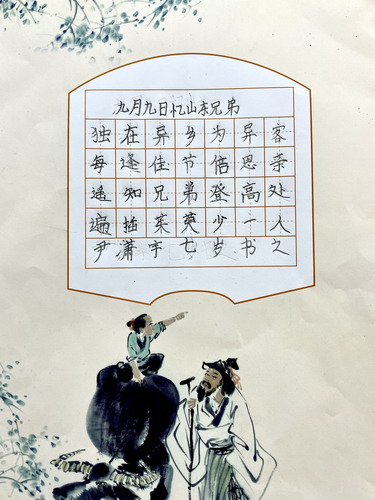 九月九日忆山东兄弟
独在异乡为异客
每逢佳节倍思亲
遥知兄弟登高处
遍插茱萸少一人
尹潇宇七岁书之